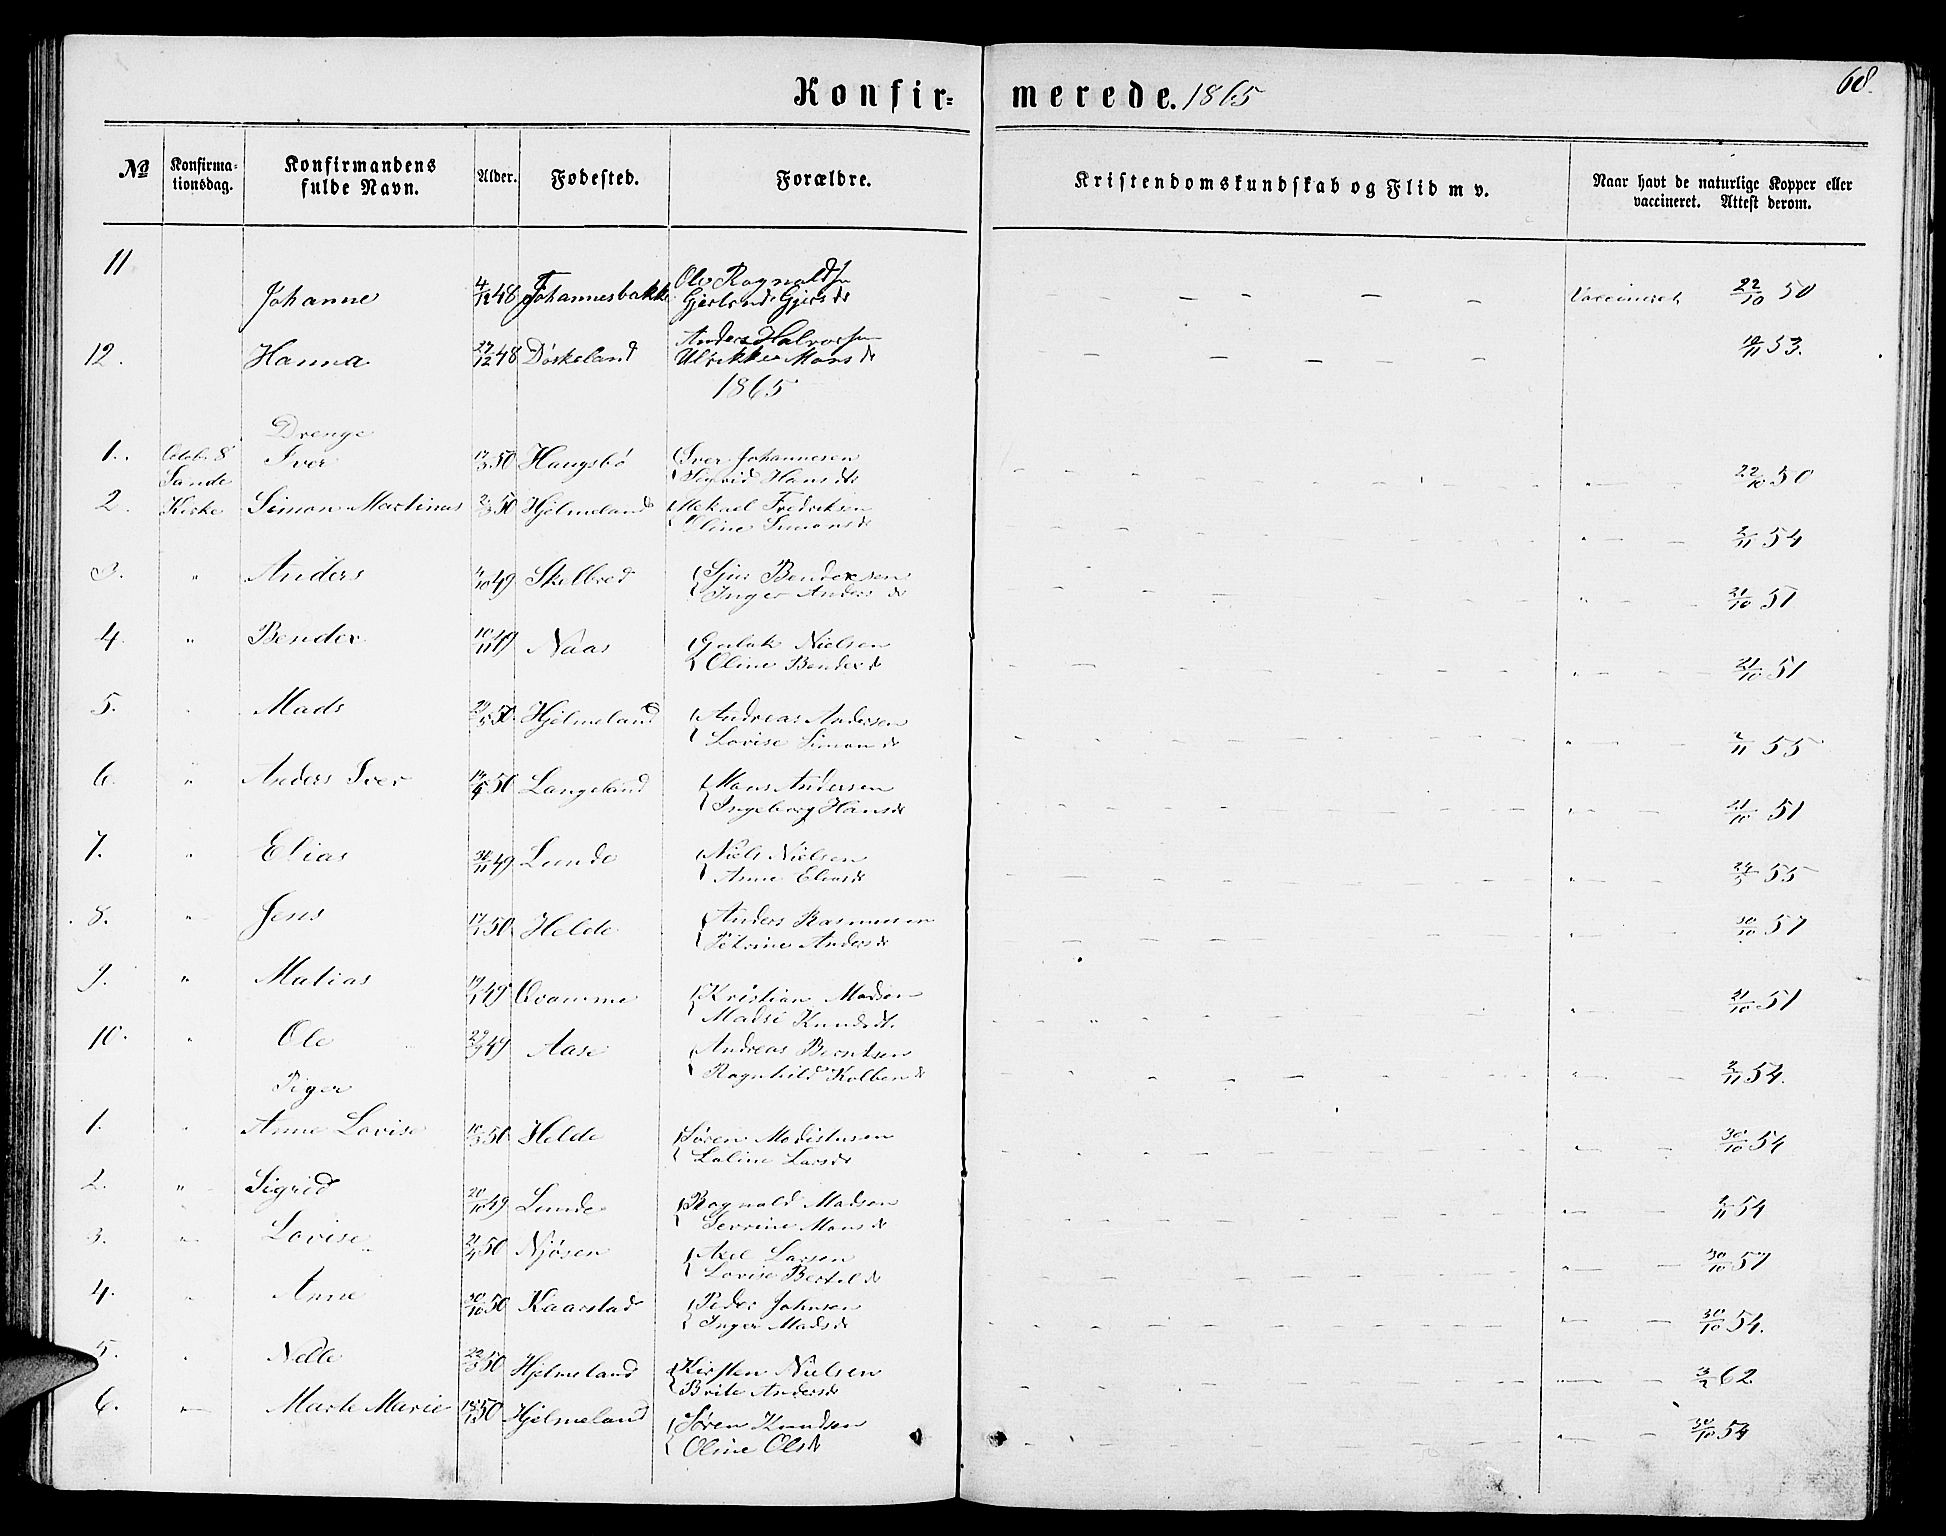 Konfir= merede. 1865
68.
No Konfirma-tionsdag. Konfirmandens fulde Navn. Alder. Fødested. Forældre. Kristendomskundskab og Flid m v. Naar havt de naturlige Kopper eller vaccineret. Attest derom.
11 Johanne 4/12 48 Johannesbakke Ole Ragnaldsn
Gjertrud Gjersdr Vaccineret 22/10 50
12. Hanna 27/12 48 Döskeland Anders Halvorsen
Ulrikke Monsdr 10/11 53.
1865
Drenge
1. Octob. 8 Iver 50 Haugsbö Iver Johannesen
Sande Sigrid Hansdtr 22/10 50
2. Kirke Simon Martinus 50 Hjelmeland Mekael Fredriksen
Oline Simonsdr 2/11 54
3. " Anders 4/10 49 Skelbred Sjur Bendexsen
Inger Andersdr 21/10 51
4. " Bendex 10/11 49 Naas Gulak Nielsen
Oline Bendexdr 21/10 51
5. Mads 50 Hjelmeland Andreas Andersen
Lovise Simondr 2/11 55
6. " Anders Iver 50 Langeland Mons Andersen
Ingeborg Hansdr 21/10 51
7. " Elias 30/11 49 Lunde Niels Nielsen
Anne Eliasdr 55
8. " Jens 17/1 50 Helde Anders Rasmussen
Petrine Andersdr 30/10 57
9. " Matias 49 Qvamme Kristian Madsen
Madsi Knudsdt. 21/10 51
10. " Ole 49 Aase Andreas Berntsen
Ragnhild Kolbendr 2/11 54.
Piger
1. " Anne Lovise 50 Helde Sören Modistusen
Loline Larsdr 30/10 54
2. " Sigrid 20/10 49 Lunde Ragnald Madsen
Severine Monsdr 2/11 54
3. " Lovise 21/4 50 Njösen Axel Larsen
Lovise Berteldr 30/10 57
4. Anne 30/10 50 Kaarstad Peder Johnsen
Inger Madsdr 30/10 54.
5. Nelle 50 Hjelmeland Kirsten Nielsen
Brite Andersdr 62
6. " Marte Marie 50 Hjelmeland Sören Knudsen
Oline Olsdr 30/10 54